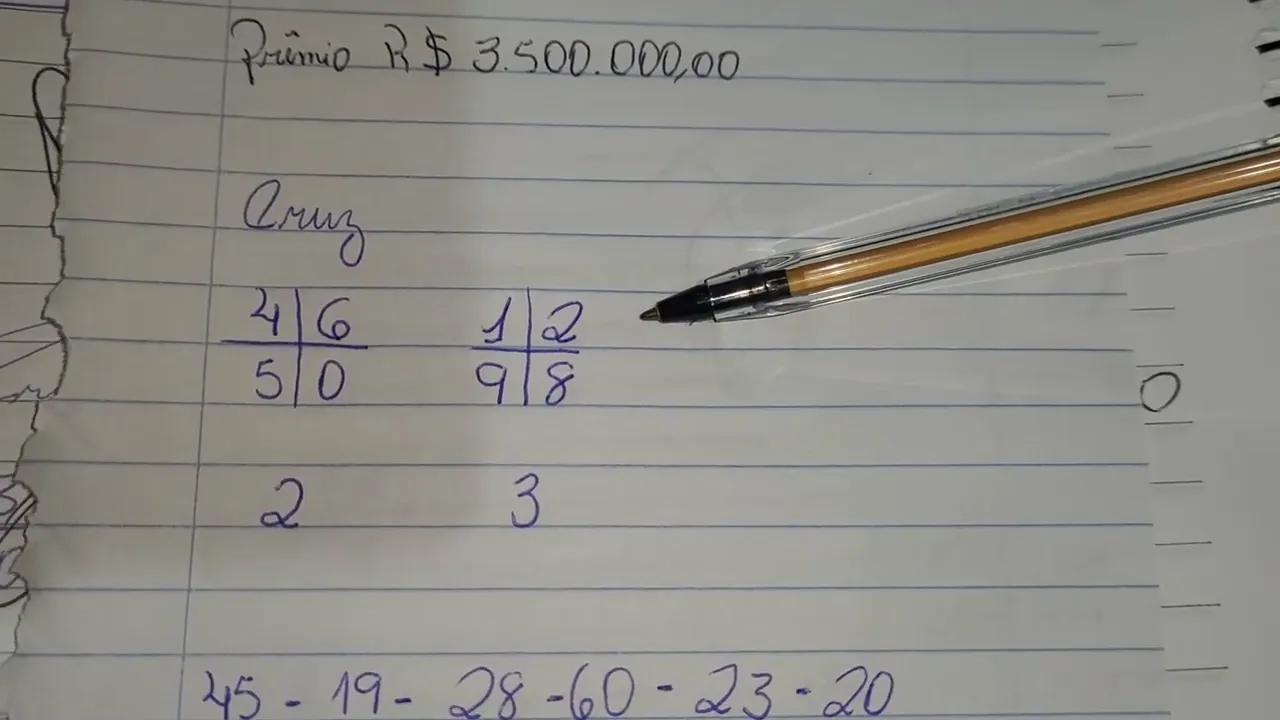 Prêmio R$ 3.500.000,00
Cruz
4 6 1 2
5 0 9 8
2 3
45 - 19 - 28 - 60 - 23 - 20